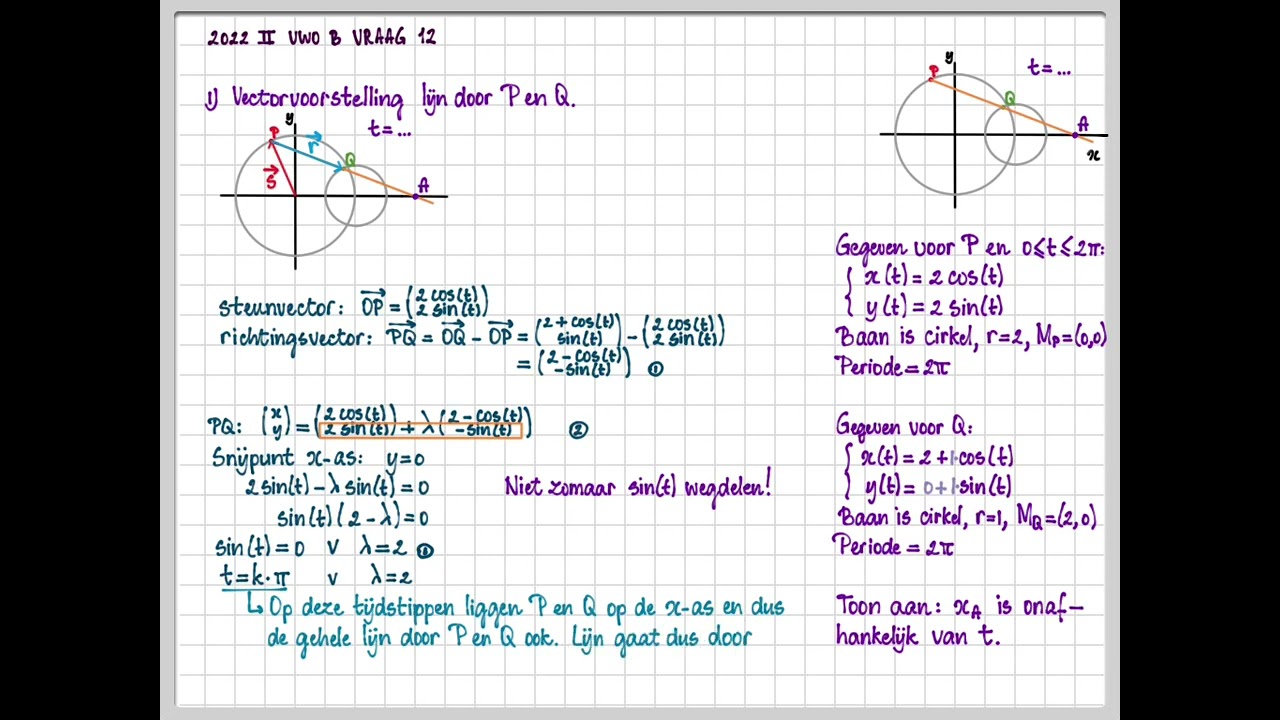 2022 II VWO B VRAAG 12
1) Vectorvoorstelling lijn door P en Q.
y
t=...
P
r
Q
s
A
steunvector: OP = (2 cos(t) 2 sin(t))
richtingsvector: PQ = OQ - OP = (2+cos(t) sin(t)) - (2 cos(t) 2 sin(t))
= (2-cos(t) -sin(t)) ①
PQ: (x y) = (2 cos(t) 2 sin(t)) + λ(2-cos(t) -sin(t)) ②
Snijpunt x-as: y=0
2 sin(t) - λ sin(t) = 0
Niet zomaar sin(t) wegdelen!
sin(t)(2-λ)=0
sin(t)=0 v λ=2 ①
t=k·π v λ=2
↳ Op deze tijdstippen liggen P en Q op de x-as en dus
de gehele lijn door P en Q ook. Lijn gaat dus door
y
t=...
P
Q
A
x
Gegeven voor P en 0⩽t⩽2π:
x(t) = 2 cos(t)
y(t) = 2 sin(t)
Baan is cirkel, r=2, Mp=(0,0)
Periode=2π
Gegeven voor Q:
x(t) = 2+1·cos(t)
y(t) = 0+1·sin(t)
Baan is cirkel, r=1, MQ=(2,0)
Periode = 2π
Toon aan: xA is onaf-
hankelijk van t.